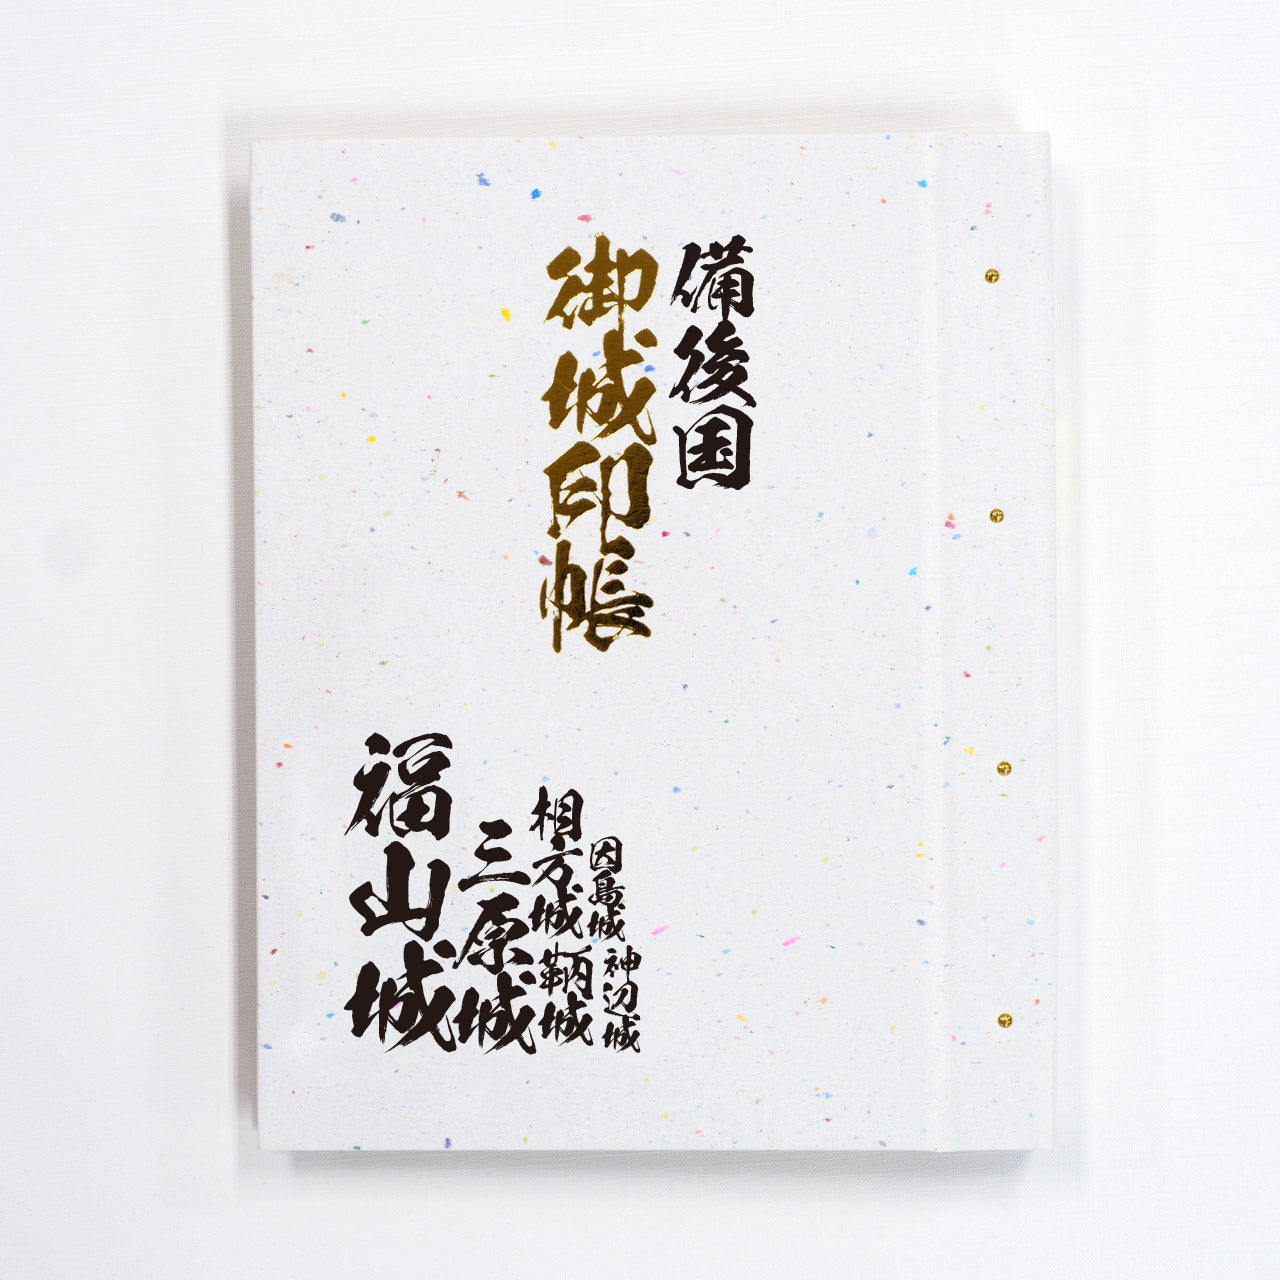 備後国
御城印帳
因島城
神辺城
相方城
鞆城
三原城
福山城